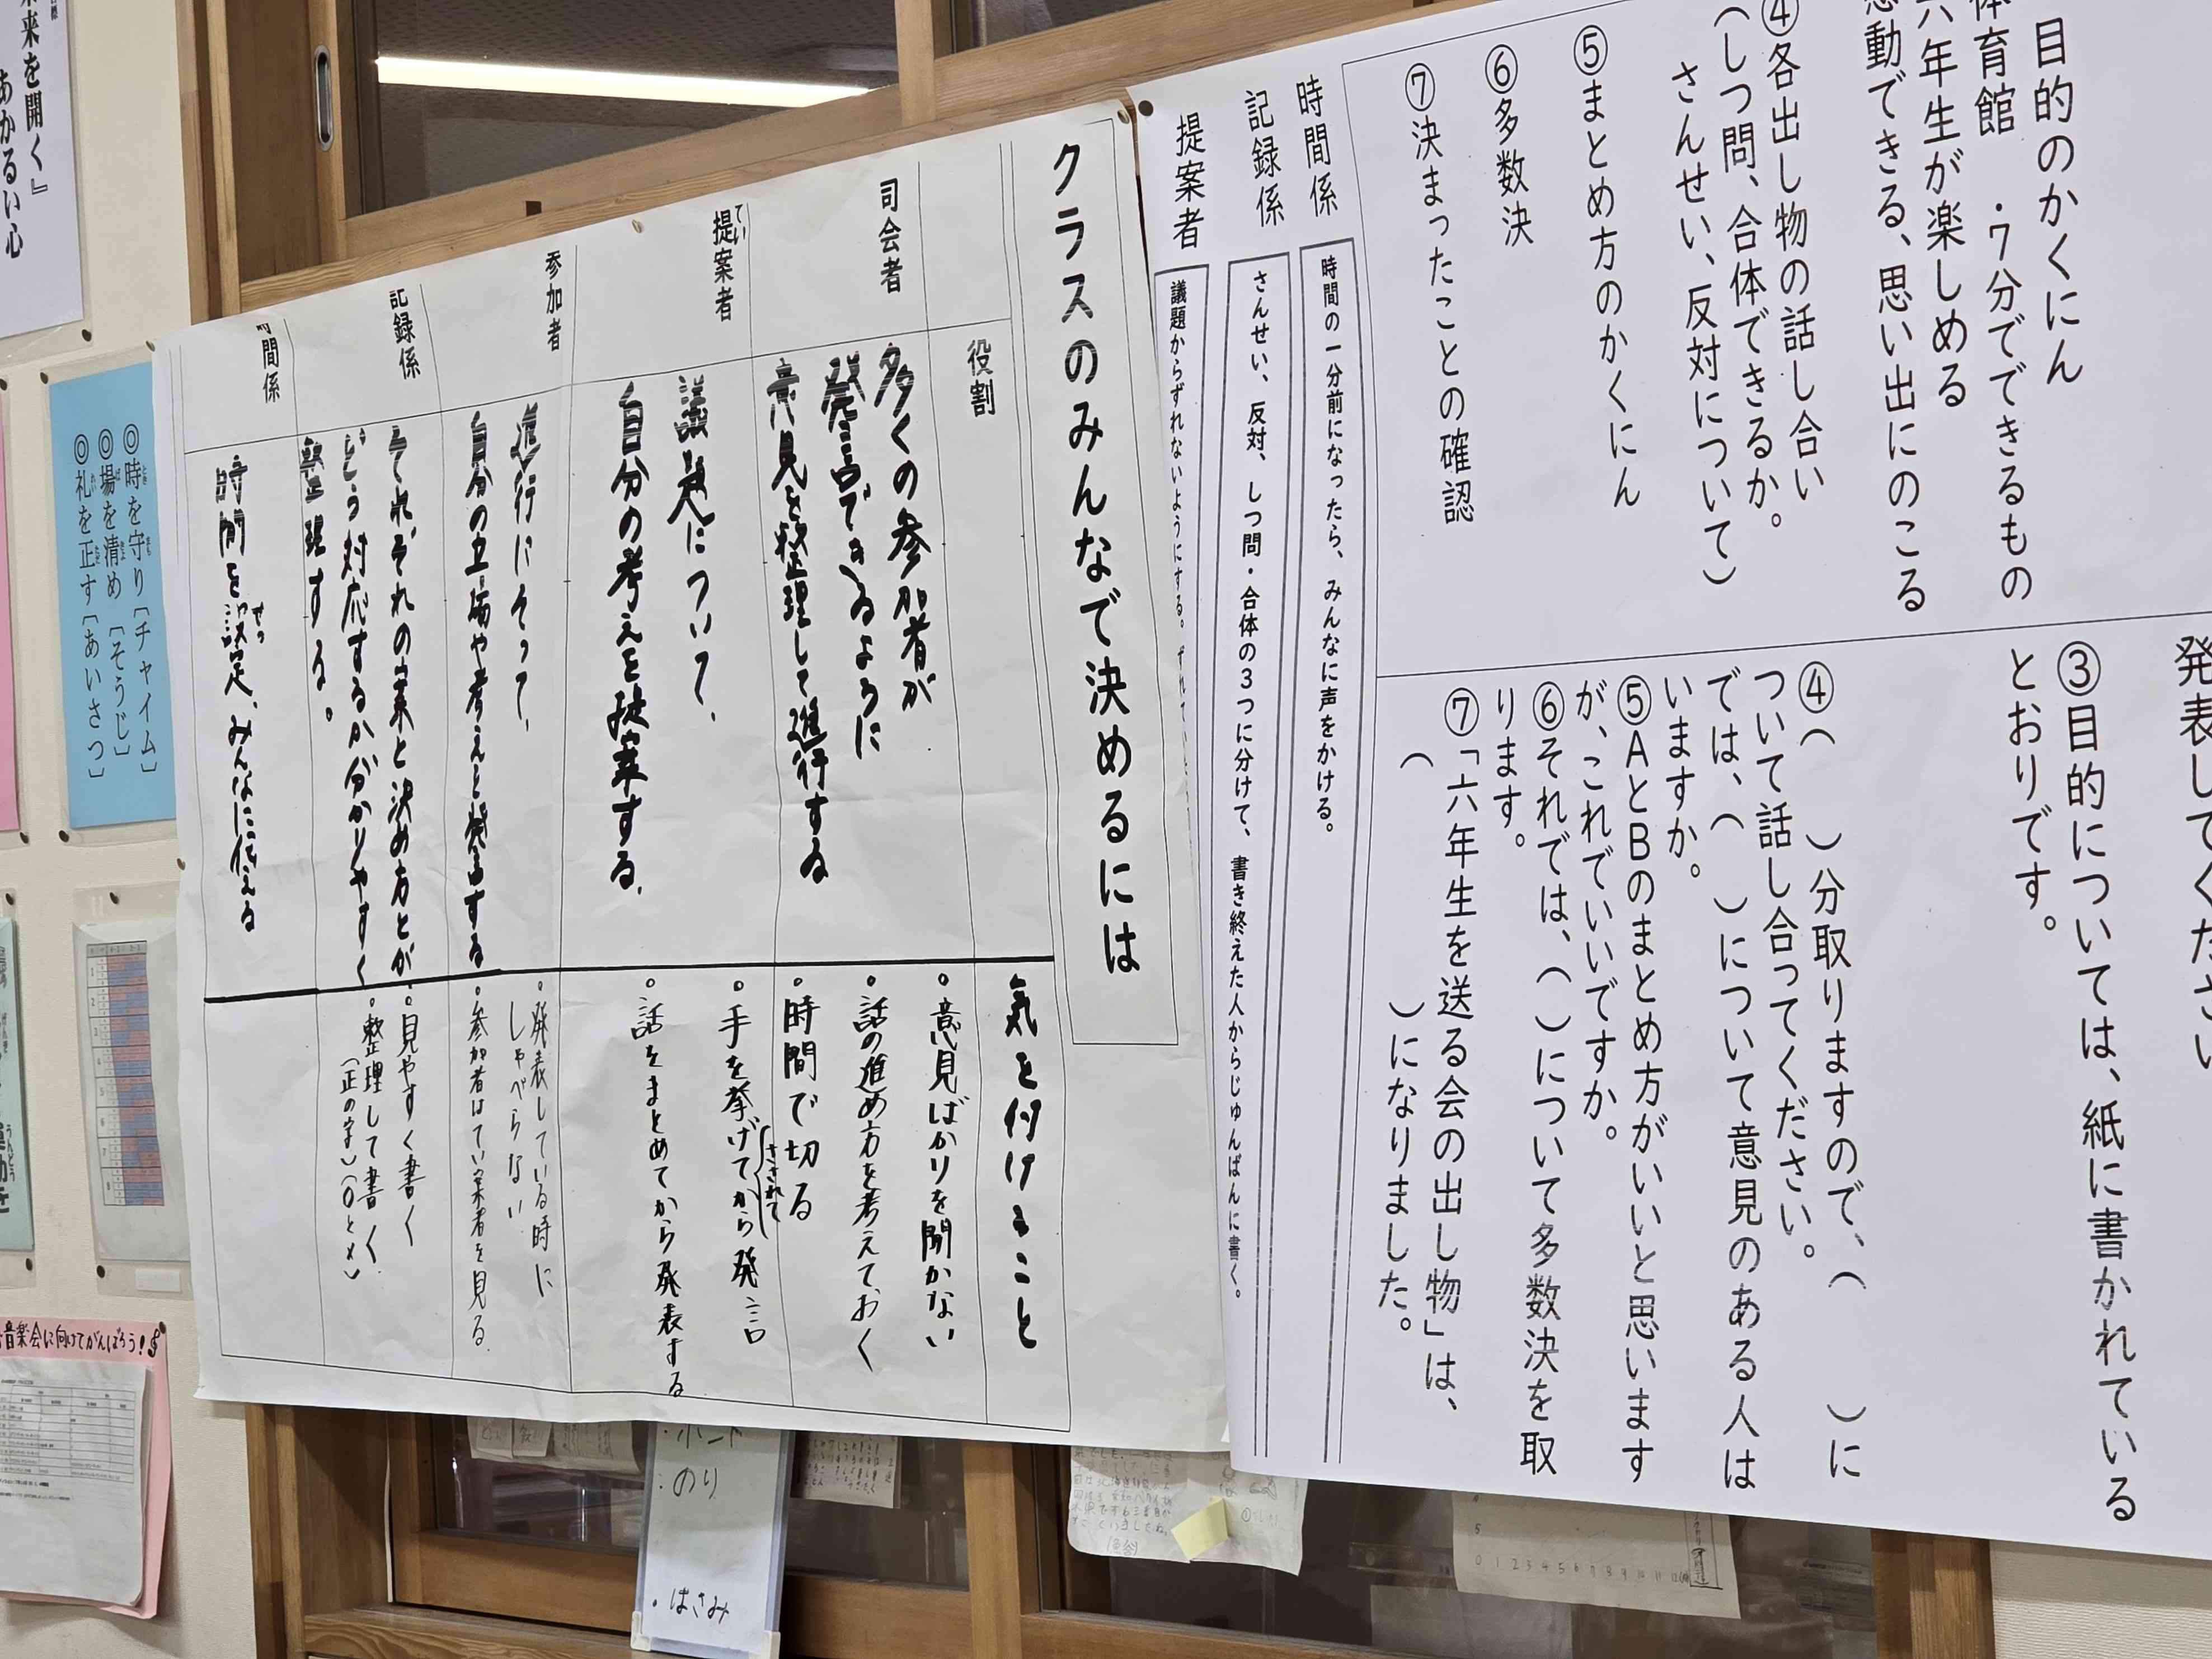 目的のかくにん
体育館 ・7分でできるもの
六年生が楽しめる
感動できる、思い出にのこる
④各出し物の話し合い
(しつ問、合体できるか。
さんせい、反対について)
⑤まとめ方のかくにん
⑥多数決
⑦決まったことの確認
発表してください
③目的については、紙に書かれている
とおりです。
④( )分取りますので、( )に
ついて話し合ってください。
では、( )について意見のある人は
いますか。
⑤AとBのまとめ方がいいと思います
が、これでいいですか。
⑥それでは、( )について多数決を取
ります。
⑦「六年生を送る会の出し物」は、
( )になりました。
時間係
時間の一分前になったら、みんなに声をかける。
記録係
さんせい、反対、しつ問・合体の3つに分けて、書き終えた人からじゅんばんに書く。
提案者
議題からずれないようにする。
クラスのみんなで決めるには
役割
気を付けること
司会者
多くの参加者が
発言できるように
意見を整理して進行する
・意見ばかりを聞かない
・話の進め方を考えておく
・時間で切る
提案者
てい
議題について、
自分の考えを提案する。
・手を挙げてから発言
さされて
・話をまとめてから発表する
参加者
進行にそって、
自分の立場や考えを発言する
・発表している時に
しゃべらない
・参加者はてい案者を見る
記録係
それぞれの案と決め方とが、
どう対応するか分かりやすく
整理する。
・見やすく書く
・整理して書く
(正の字)(○と×)
時間係
時間を設定、みんなに伝える
せっ
未来を開く』
あかるい心
◎時を守り〔チャイム〕
◎場を清め〔そうじ〕
◎礼を正す〔あいさつ〕
音楽会に向けてがんばろう!
・のり
・はさみ